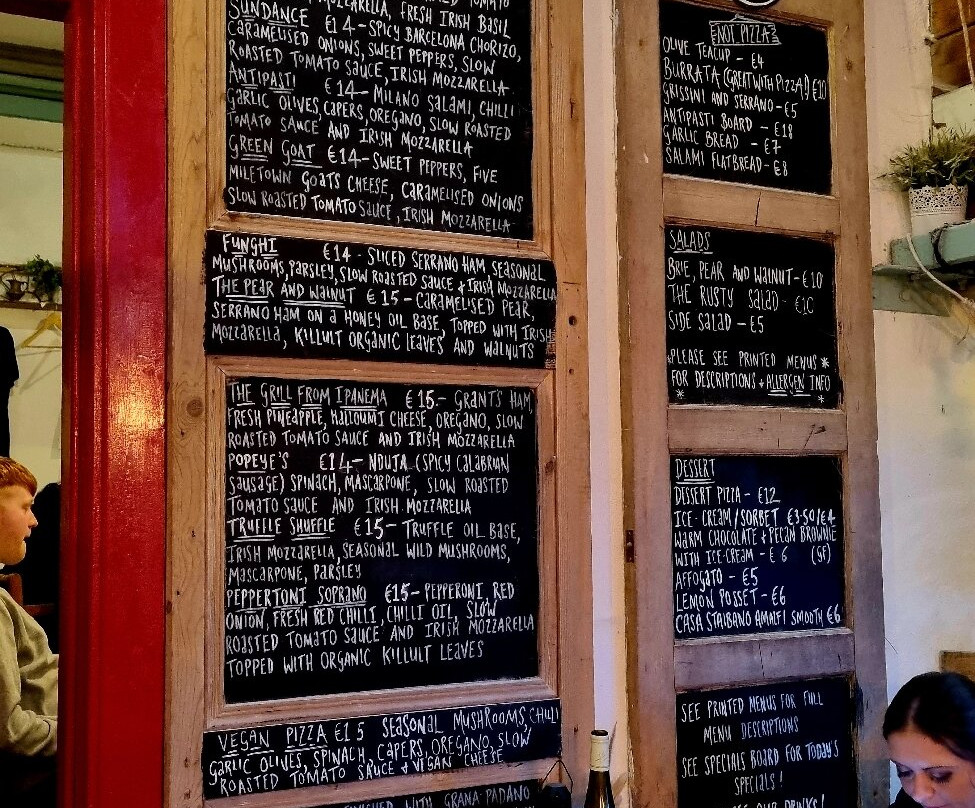 MOZZARELLA, FRESH IRISH BASIL
SUNDANCE €14-SPICY BARCELONA CHORIZO,
CARAMELISED ONIONS, SWEET PEPPERS, SLOW
ROASTED TOMATO SAUCE, IRISH MOZZARELLA
ANTIPASTI €14-MILANO SALAMI, CHILLI
GARLIC OLIVES, CAPERS, OREGANO, SLOW ROASTED
TOMATO SAUCE AND IRISH MOZZARELLA
GREEN GOAT €14-SWEET PEPPERS, FIVE
MILETOWN GOATS CHEESE, CARAMELISED ONIONS
SLOW ROASTED TOMATO SAUCE, IRISH MOZZARELLA
FUNGHI €14-SLICED SERRANO HAM, SEASONAL
MUSHROOMS, PARSLEY, SLOW ROASTED SAUCE + IRISH MOZZARELLA
THE PEAR AND WALNUT €15-CARAMELISED PEAR,
SERRANO HAM ON A HONEY OIL BASE, TOPPED WITH IRISH
MOZZARELLA, KILLULT ORGANIC LEAVES AND WALNUTS
THE GRILL FROM IPANEMA €15-GRANTS HAM,
FRESH PINEAPPLE, HALLOUMI CHEESE, OREGANO, SLOW
ROASTED TOMATO SAUCE AND IRISH MOZZARELLA
POPEYE'S €14-NDUJA (SPICY CALABRIAN
SAUSAGE) SPINACH, MASCARPONE, SLOW ROASTED
TOMATO SAUCE AND IRISH MOZZARELLA
TRUFFLE SHUFFLE €15-TRUFFLE OIL BASE,
IRISH MOZZARELLA, SEASONAL WILD MUSHROOMS,
MASCARPONE, PARSLEY
PEPPERTONI SOPRANO €15-PEPPERONI, RED
ONION, FRESH RED CHILLI, CHILLI OIL, SLOW
ROASTED TOMATO SAUCE AND IRISH MOZZARELLA
TOPPED WITH ORGANIC KILLULT LEAVES
VEGAN PIZZA €15 SEASONAL MUSHROOMS, CHILLI
GARLIC OLIVES, SPINACH, CAPERS, OREGANO, SLOW
ROASTED TOMATO SAUCE + VEGAN CHEESE
FINISHED WITH GRANA PADANO
ENOT PIZZA
OLIVE TEACUP - €4
BURRATA (GREAT WITH PIZZA!) €10
GRISSINI AND SERRANO - €5
ANTIPASTI BOARD - €18
GARLIC BREAD - €7
SALAMI FLATBREAD - €8
SALADS
BRIE, PEAR AND WALNUT - €10
THE RUSTY SALAD - €10
SIDE SALAD - €5
*PLEASE SEE PRINTED MENUS*
FOR DESCRIPTIONS + ALLERGEN INFO
* *
DESSERT
DESSERT PIZZA - €12
ICE-CREAM/SORBET €3.50/€4
WARM CHOCOLATE + PECAN BROWNIE
WITH ICE-CREAM - €6 (GF)
AFFOGATO - €5
LEMON POSSET - €6
CASA STAIBANO AMALFI SMOOTH €6
SEE PRINTED MENUS FOR FULL
MENU DESCRIPTIONS
SEE SPECIALS BOARD FOR TODAY'S
SPECIALS!
OUR DRINKS!